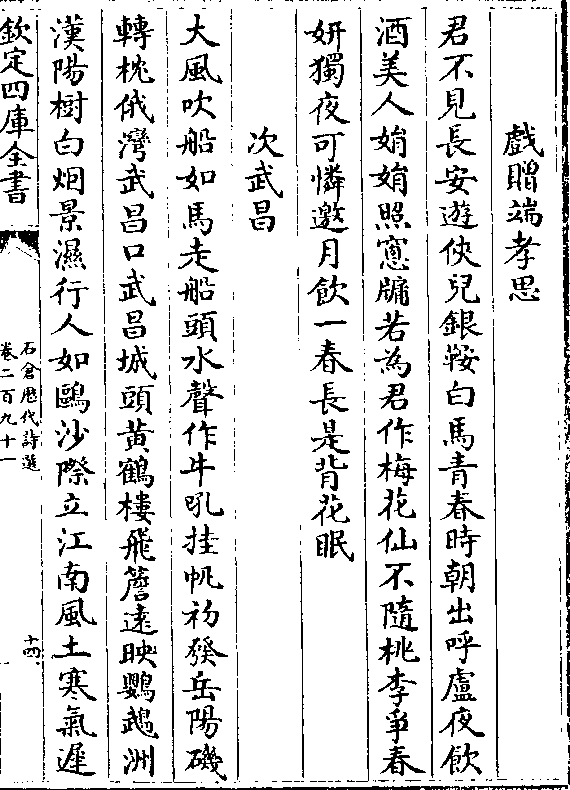 戲贈端孝思
君不見長安遊俠兒銀鞍白馬青春時朝出呼盧夜飲
酒美人娟娟照窻牖若為君作梅花仙不隨桃李爭春
妍獨夜可憐邀月飲一春長是背花眠
次武昌
大風吹船如馬走船頭水聲作牛吼挂帆初發岳陽磯
轉枕俄灣武昌口武昌城頭黃鶴樓飛簷遠映鸚鵡洲
漢陽樹白烟景濕行人如鷗沙際立江南風土寒氣遲
欽定四庫全書
石倉歷代詩選
卷二百九十一
十四